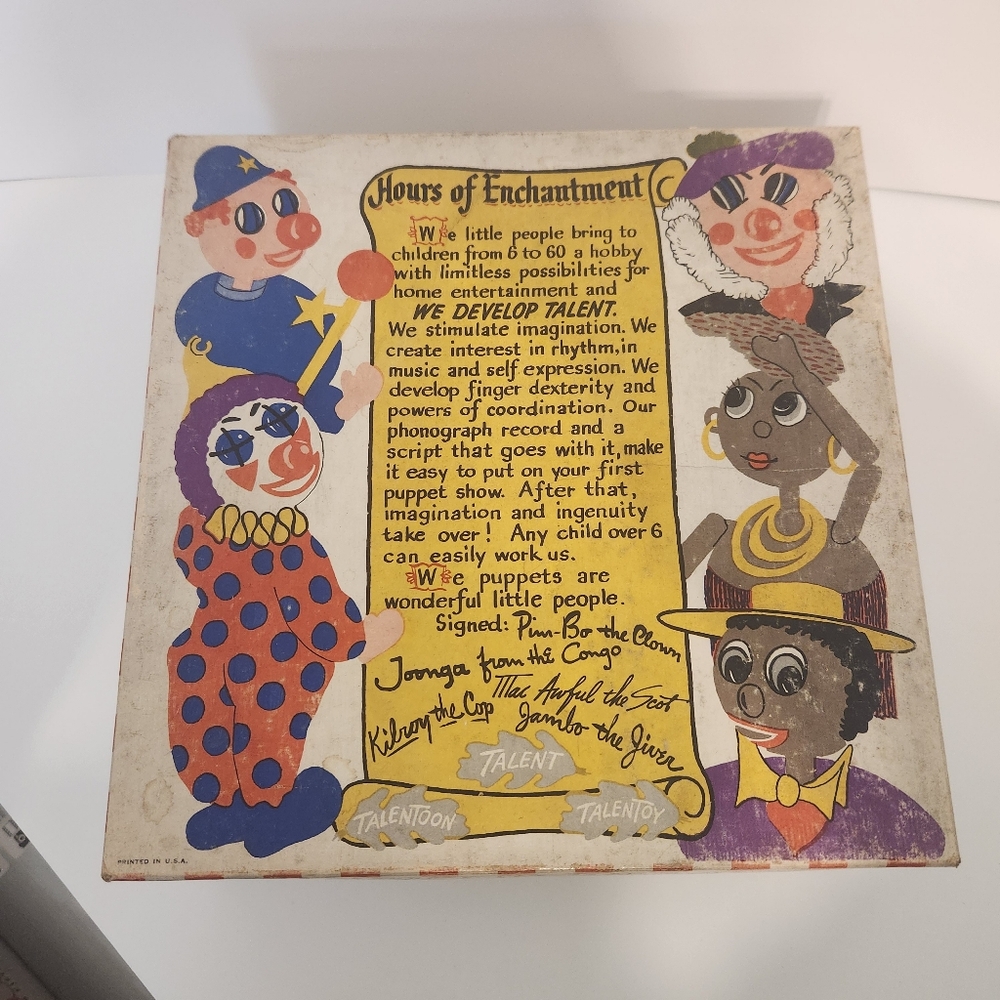 Hours of Enchantment
We little people bring to
children from 6 to 60 a hobby
with limitless possibilities for
home entertainment and
WE DEVELOP TALENT.
We stimulate imagination. We
create interest in rhythm, in
music and self expression. We
develop finger dexterity and
powers of coordination. Our
phonograph record and a
script that goes with it, make
it easy to put on your first
puppet show. After that,
imagination and ingenuity
take over! Any child over 6
can easily work us.
We puppets are
wonderful little people.
Signed: Pim-Bo the Clown
Joonga from the Congo
Mac Awful the Scot
Kilroy the Cop
Jambo the Jiver
TALENT
TALENTOON
TALENTOY
PRINTED IN U.S.A.